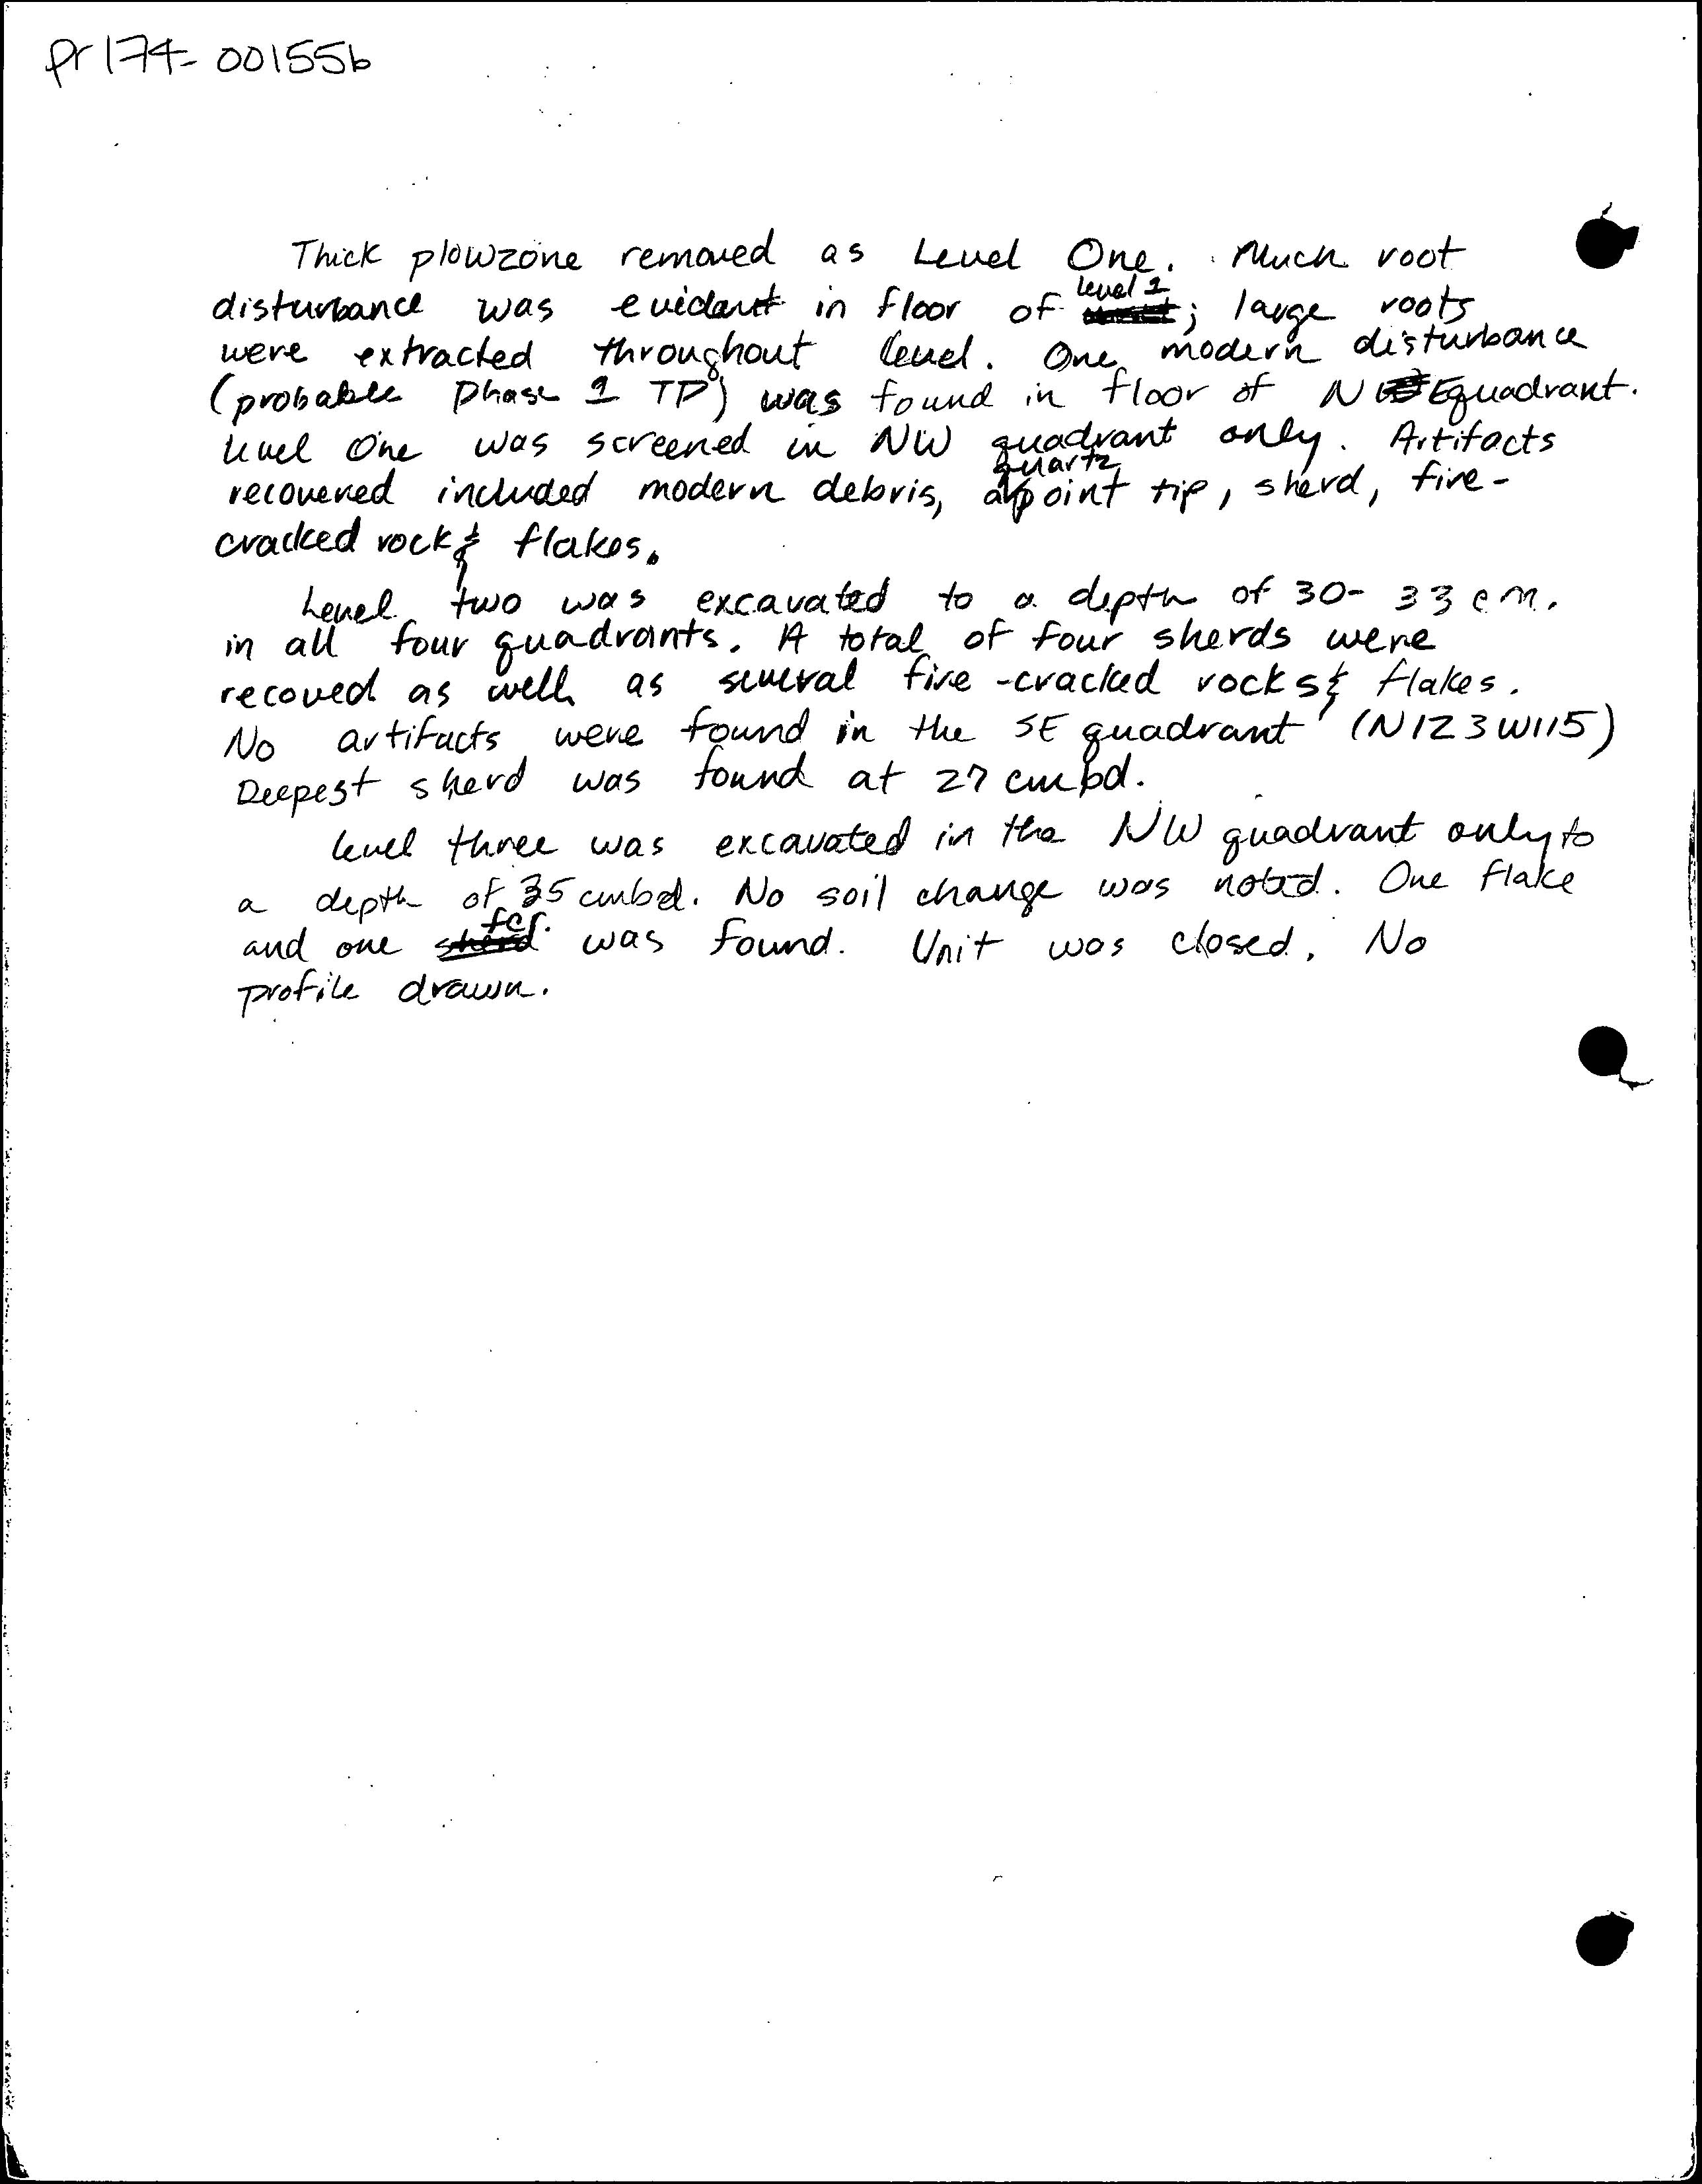 pr174-00155b
Thick plowzone removed as Level One. Much root
disturbance was evident in floor of level 1; large roots
were extracted throughout level. One modern disturbance
(probable Phase 1 TP) was found in floor of NE quadrant.
level One was screened in NW quadrant only. Artifacts
recovered included modern debris, a quartz point tip, sherd, fire-
cracked rock & flakes.
Level two was excavated to a depth of 30-33 cm.
in all four quadrants. A total of four sherds were
recoved as well as several fire-cracked rocks & flakes.
No artifacts were found in the SE quadrant (N123W115)
Deepest sherd was found at 27 cmbd.
level three was excavated in the NW quadrant only to
a depth of 35 cmbd. No soil change was noted. One flake
and one sherd fcr. was found. Unit was closed. No
profile drawn.